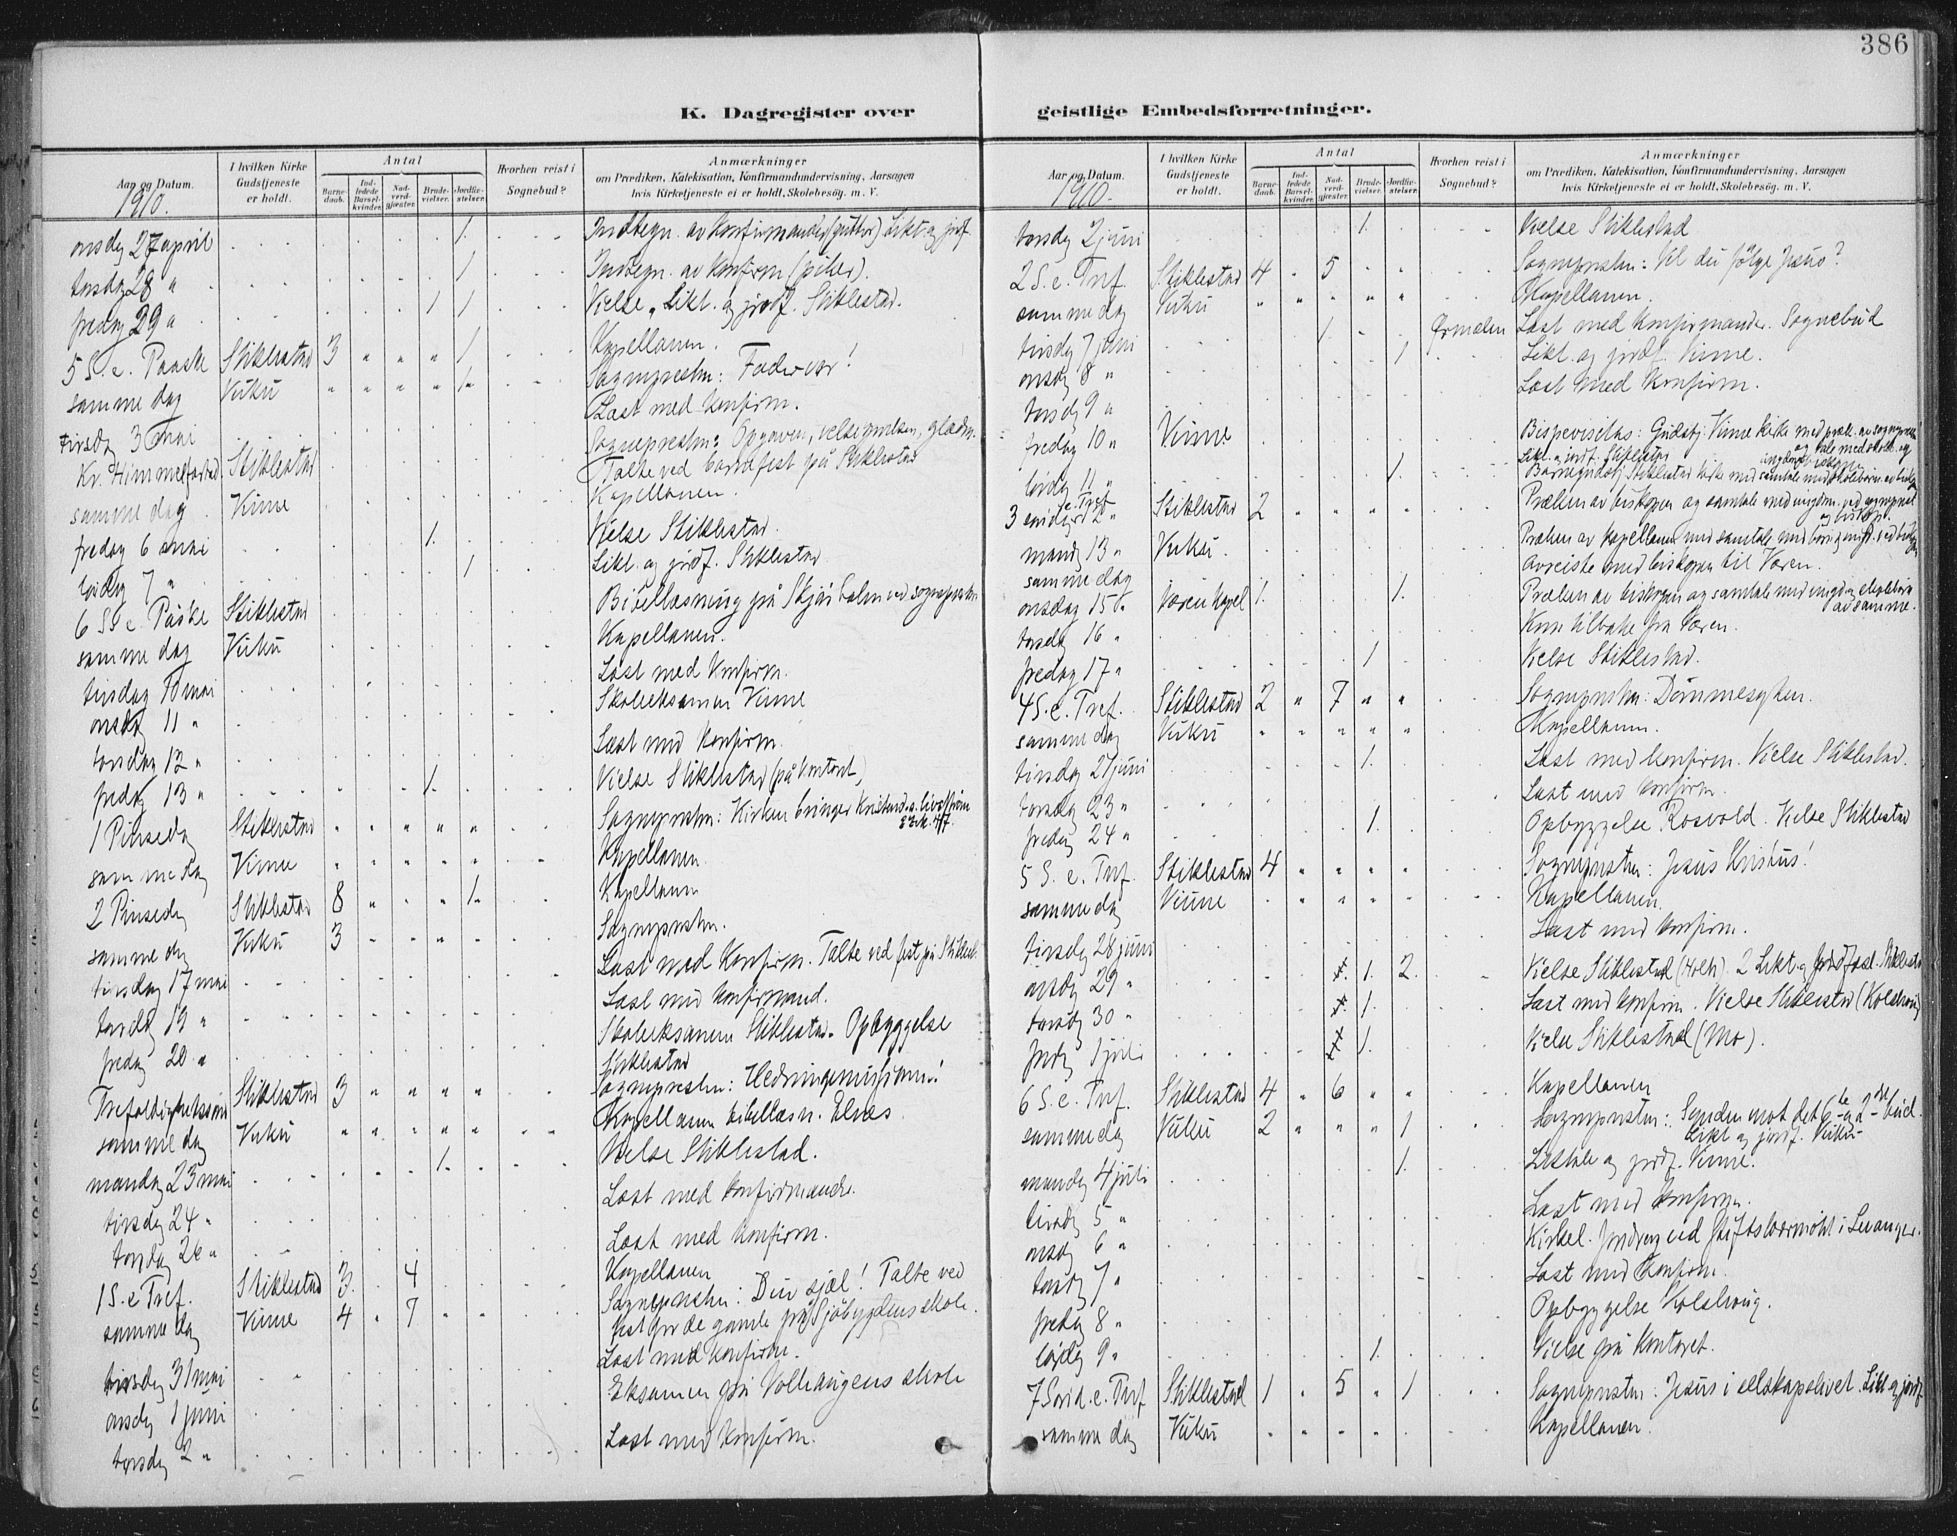 386
K. Dagregister over geistlige Embedsforretninger.
Aar og Datum. I hvilken Kirke Gudstjeneste er holdt. Antal Barnedaab. Indledede Barselkvinder. Nadverdgjæster. Brudevielser. Jordfæstelser. Hvorhen reist i Sognebud? Anmærkninger om Prædiken, Katekisation, Konfirmandundervisning, Aarsagen hvis Kirketjeneste ei er holdt, Skolebesøg. m. V.
1910.
onsdag 27 april 1. Indtegn. av Konfirmander (gutter) Likt og jrdf.
torsdag 28 " 1 Indtegn. av Konfirm (piker).
fredag 29 " 1 1 Vielse, Likt. og jrdf. Stiklestad.
5 S. e. Paaske Stiklestad 3 " " " 1 Kapellanen.
samme dag Vuku " " " " 1 Sognepresten: Fadervor!
tirsdag 3 mai Læst med Konfirm.
Kr. Himmelfartsd. Stiklestad Sognepresten: Opgaven, velsignelsen, glæden.
Talte ved barnefest på Stiklestad
samme dag Vinne Kapellanen.
fredag 6 mai 1. Vielse Stiklestad.
lørdag 7 " 1 Likt. og jrdf. Stiklestad.
6 S. e. Påske Stiklestad Bibellæsning på ved sognepresten
samme dag Vuku Kapellanen.
tirsdag 10 mai Læst med Konfirm.
onsdag 11 " Skoleeksamen Vinne
torsdag 12 " Læst med Konfirm.
fredag 13 " 1. Vielse Stiklestad (på kontoret)
1 Pinsedag Stiklestad " " " " " Sognepresten: Kirken bringer
samme dag Vinne " " " " " Kapellanen
2 Pinsedag Stiklestad 8 " " " 1. Kapellanen
samme dag Vuku 3 " " " " Sognepresten.
tirsdag 17 mai Læst med Konfirm. Talte ved fest på Stiklest.
torsdag 19 " Læst med Konfirmand.
fredag 20 " Skoleeksamen Stiklestad. Opbyggelse
Stiklestad
Trefoldighetssønd. Stiklestad 3 " " " " Sognepresten: Hedningemissionen!
samme dag Vuku " " " " " Kapellanen bibellæsn. Elnes
mandag 23 mai 1. Vielse Stiklestad.
tirsdag 24 " Læst med Konfirmander.
torsdag 26 " Læst med Konfirm.
1 S. e Tref. Stiklestad 3 4 Kapellanen
samme dag Vinne 4 " 7 " " Sognepresten: Din sjæl! Talte ved
fest for de gamle på Sjøbygdens skole.
tirsdag 31 mai Læst med Konfirm.
onsdag 1 juni Eksamen på Volhaugens skole
torsdag 2 " Læst med Konfirm.
Aar og Datum. I hvilken Kirke Gudstjeneste er holdt. Antal Barnedaab. Indledede Barselkvinder. Nadverdgjæster. Brudevielser. Jordfæstelser. Hvorhen reist i Sognebud? Anmærkninger om Prædiken, Katekisation, Konfirmandundervisning, Aarsagen hvis Kirketjeneste ei er holdt, Skolebesøg. m. V.
1910.
torsdag 2 juni 1. Vielse Stiklestad
2 S. e. Tref. Stiklestad 4 " 5 " " Sognepresten: Vil du følge Jesus?
samme dag Vuku " " " " " Kapellanen.
tirsdag 7 juni 1 Ørmelen Læst med Konfirmander. Sognebud
onsdag 8 " 1 Likt. og jrdf. Vinne.
torsdag 9 " Læst med Konfirm.
fredag 10 " Vinne Bispevisitas: Gudstj. Vinne kirke med præk. av sognepresten
Likt. og jrdf. Stiklestad
lørdag 11 " 1. Barnegudstj. Stiklestad kirke med samtale med skolebørn av biskopen
3 søndag e. Tref. 12 " Stiklestad 2 " " " " Præken av biskopen og samtale med ungdom. ved sognepresten
og biskop.
mandag 13 " Vuku. Præken av Kapellanen med samtale med
samme dag avreiste med biskopen til Væren.
onsdag 15 " Væren Kapel 1. 1. Præken av biskopen og samtale med ungd. og skolebørn
av samme.
torsdag 16 " Kom tilbake fra Væren.
fredag 17 " 1 Vielse Stiklestad.
4 S. e. Tref. Stiklestad 2 " 7 " " Sognepresten: Dømmesyken.
samme dag Vuku " " " " " Kapellanen.
tirsdag 21 juni 1. Læst med konfirm. Vielse Stiklestad.
torsdag 23 " Læst med konfirm.
fredag 24 " 1. Opbyggelse Rosvold. Vielse Stiklestad
5 S. e. Tref. Stiklestad 4 " " " " Sognepresten: Jesus Kristus!
samme dag Vinne " " " " Kapellanen.
tirsdag 28 juni Læst med konfirm.
onsdag 29 " 1. 2. Vielse Stiklestad (Holti). 2 Likt og jordfæst. Stiklestad
torsdag 30 " 1. Læst med konfirm. Vielse Stiklestad (Kolshaug)
fredag 1 juli 1. Vielse Stiklestad (Mo).
6 S. e. Tref. Stiklestad 4 " 6 " " Kapellanen
samme dag Vuku 2 " " " 1 Sognepresten: Synden mot det 6te og 2det bud.
Likt og jordf. Vuku
mandag 4 juli 1. Liktale og jrdf. Vinne.
tirsdag 5 " Læst med Konfirm.
onsdag 6 " Kirkel. ved i Levanger.
torsdag 7 " Læst med Konfirm.
fredag 8 " Opbyggelse Kolshaug.
lørdag 9 " 1. Vielse på kontoret.
7 Sønd. e. Tref Stiklestad 1 " 5 " 1 Sognepresten: Jesus i selskapslivet. Likt og jordf.
samme dag Vuku " " " " " Kapellanen.